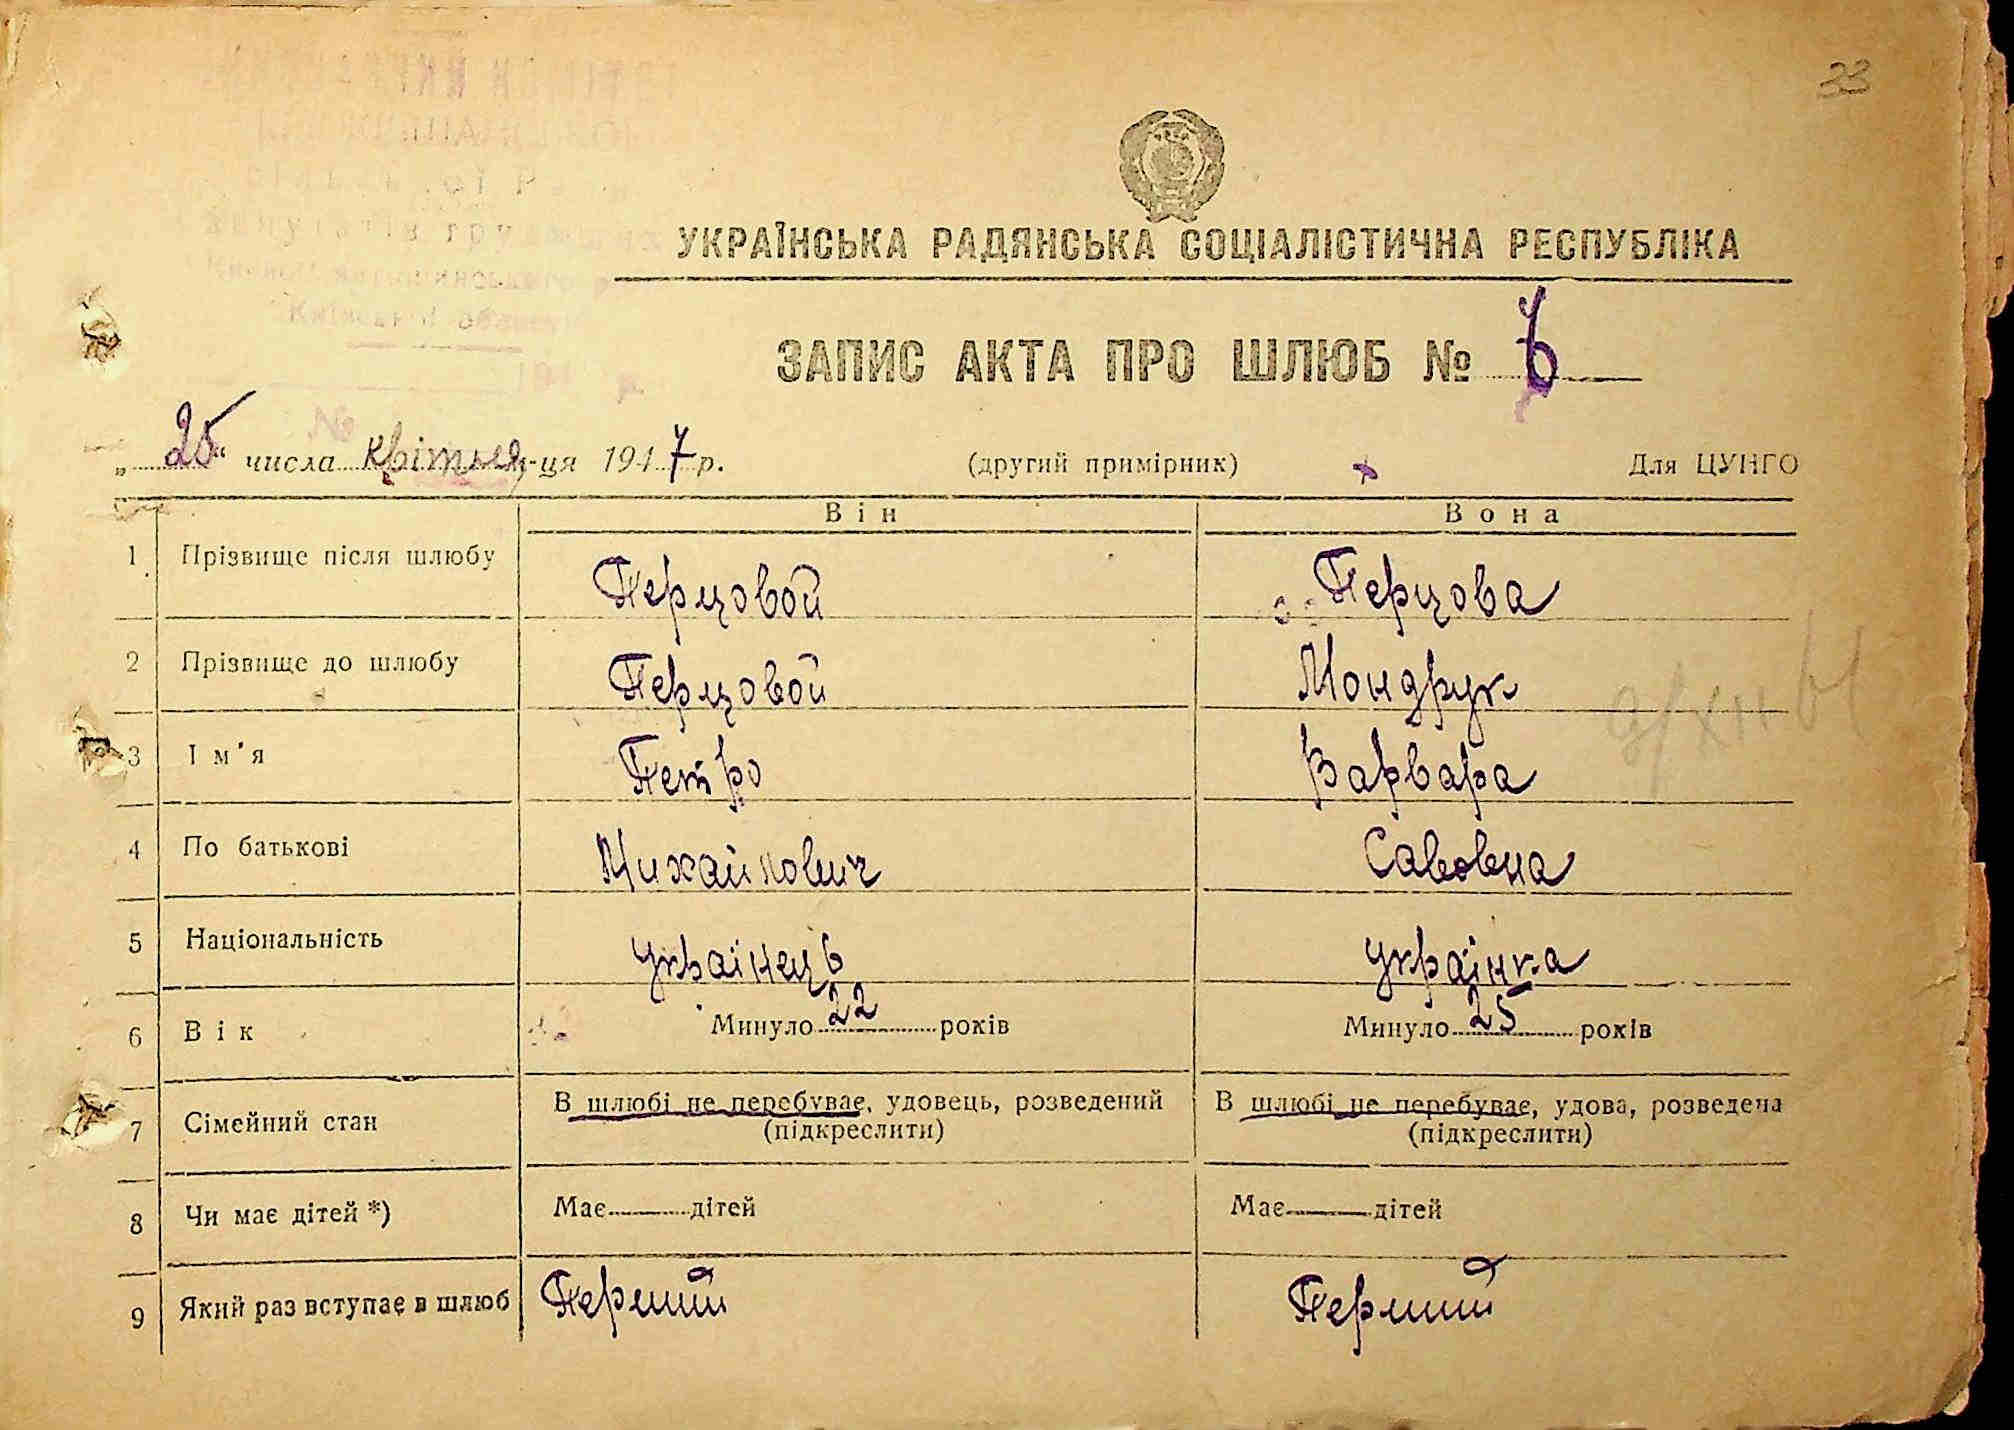 33
УКРАЇНСЬКА РАДЯНСЬКА СОЦІАЛІСТИЧНА РЕСПУБЛІКА
ЗАПИС АКТА ПРО ШЛЮБ № 6
„25“ числа квітня ця 1947 р. (другий примірник) Для ЦУНГО
Він Вона
1 Прізвище після шлюбу Перцовой Перцова
2 Прізвище до шлюбу Перцовой Мондрук
3 Ім'я Петро Варвара
4 По батькові Михайлович Савовна
5 Національність Українець Українка
6 Вік Минуло 22 років Минуло 25 років
7 Сімейний стан В шлюбі не перебуває, удовець, розведений В шлюбі не перебуває, удова, розведена
(підкреслити) (підкреслити)
8 Чи має дітей *) Має — дітей Має — дітей
9 Який раз вступає в шлюб Перший Перший